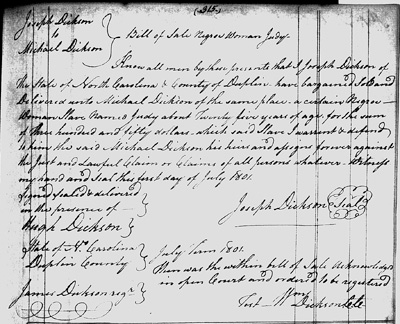 (315)
Joseph Dickson
to
Michael Dickson
Bill of Sale Negroe Woman Judy.
Know all men by these presents that I Joseph Dickson of
the State of North Carolina & County of Duplin have bargained Sold and
Delivered unto Michael Dickson of the same place a certain Negroe
Woman Slave Named Judy about Twenty five years of age for the sum
of three hundred and fifty dollars which said Slave I warrant & defend
to him the said Michael Dickson his heirs and assigns forever against
the Just and Lawful Claim or Claims of all persons whatever. Witness
my hand and Seal this first day of July 1801.
Signed Sealed & delivered
in the presence of
Hugh Dickson
Joseph Dickson Seal
State of No. Carolina
Duplin County
July Term 1801.
Then was the within bill of Sale Acknowledged
in open Court and ordered to be registered
James Dickson regr.
Test Wm Dickson Clk